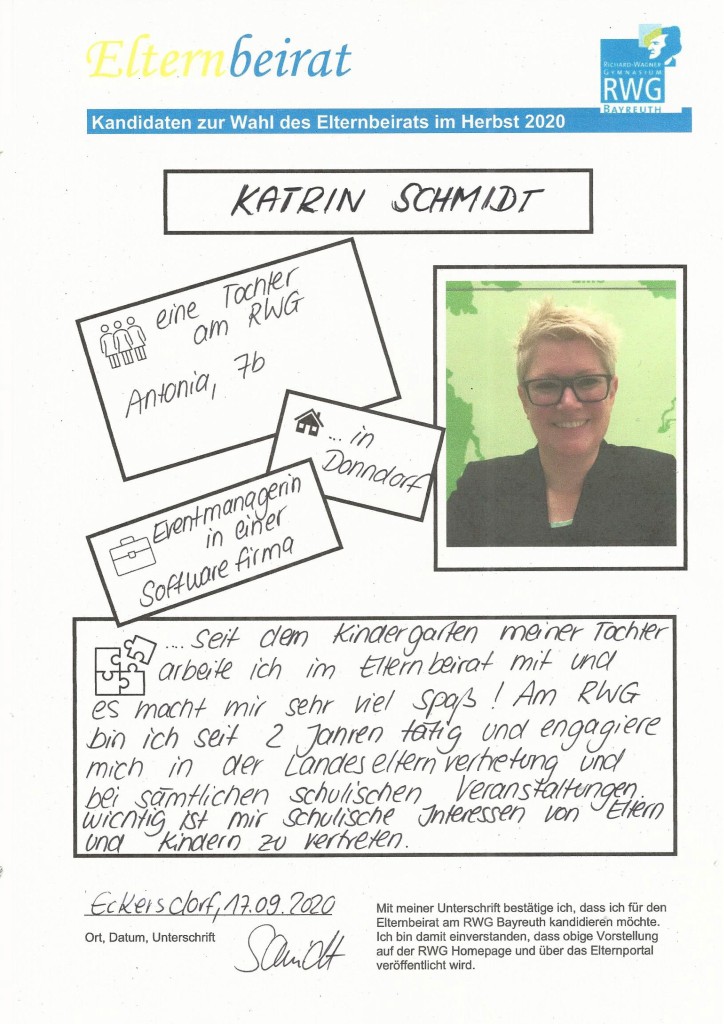 Elternbeirat
RICHARD-WAGNER
GYMNASIUM
RWG
BAYREUTH
Kandidaten zur Wahl des Elternbeirats im Herbst 2020
KATRIN SCHMIDT
eine Tochter
am RWG
Antonia, 7b
... in
Donndorf
Eventmanagerin
in einer
Softwarefirma
... seit dem Kindergarten meiner Tochter
arbeite ich im Elternbeirat mit und
es macht mir sehr viel Spaß! Am RWG
bin ich seit 2 Jahren tätig und engagiere
mich in der Landeselternvertretung und
bei sämtlichen schulischen Veranstaltungen.
Wichtig ist mir schulische Interessen von Eltern
und Kindern zu vertreten.
Eckersdorf, 17.09.2020
Ort, Datum, Unterschrift
Schmidt
Mit meiner Unterschrift bestätige ich, dass ich für den
Elternbeirat am RWG Bayreuth kandidieren möchte.
Ich bin damit einverstanden, dass obige Vorstellung
auf der RWG Homepage und über das Elternportal
veröffentlicht wird.